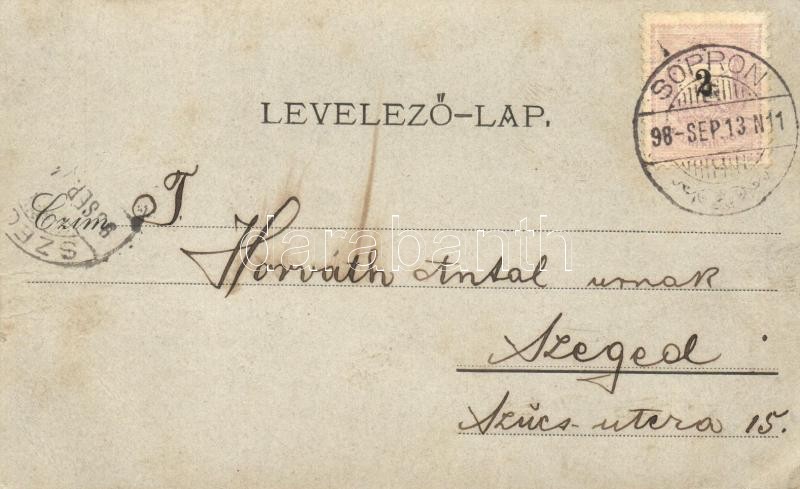 SOPRON
2
98-SEP.13 N11
LEVELEZŐ-LAP.
Czim T.
SZEG
SEP.
Horváth Antal urnak
darabanth
Szeged
Szűcs-utcza 15.